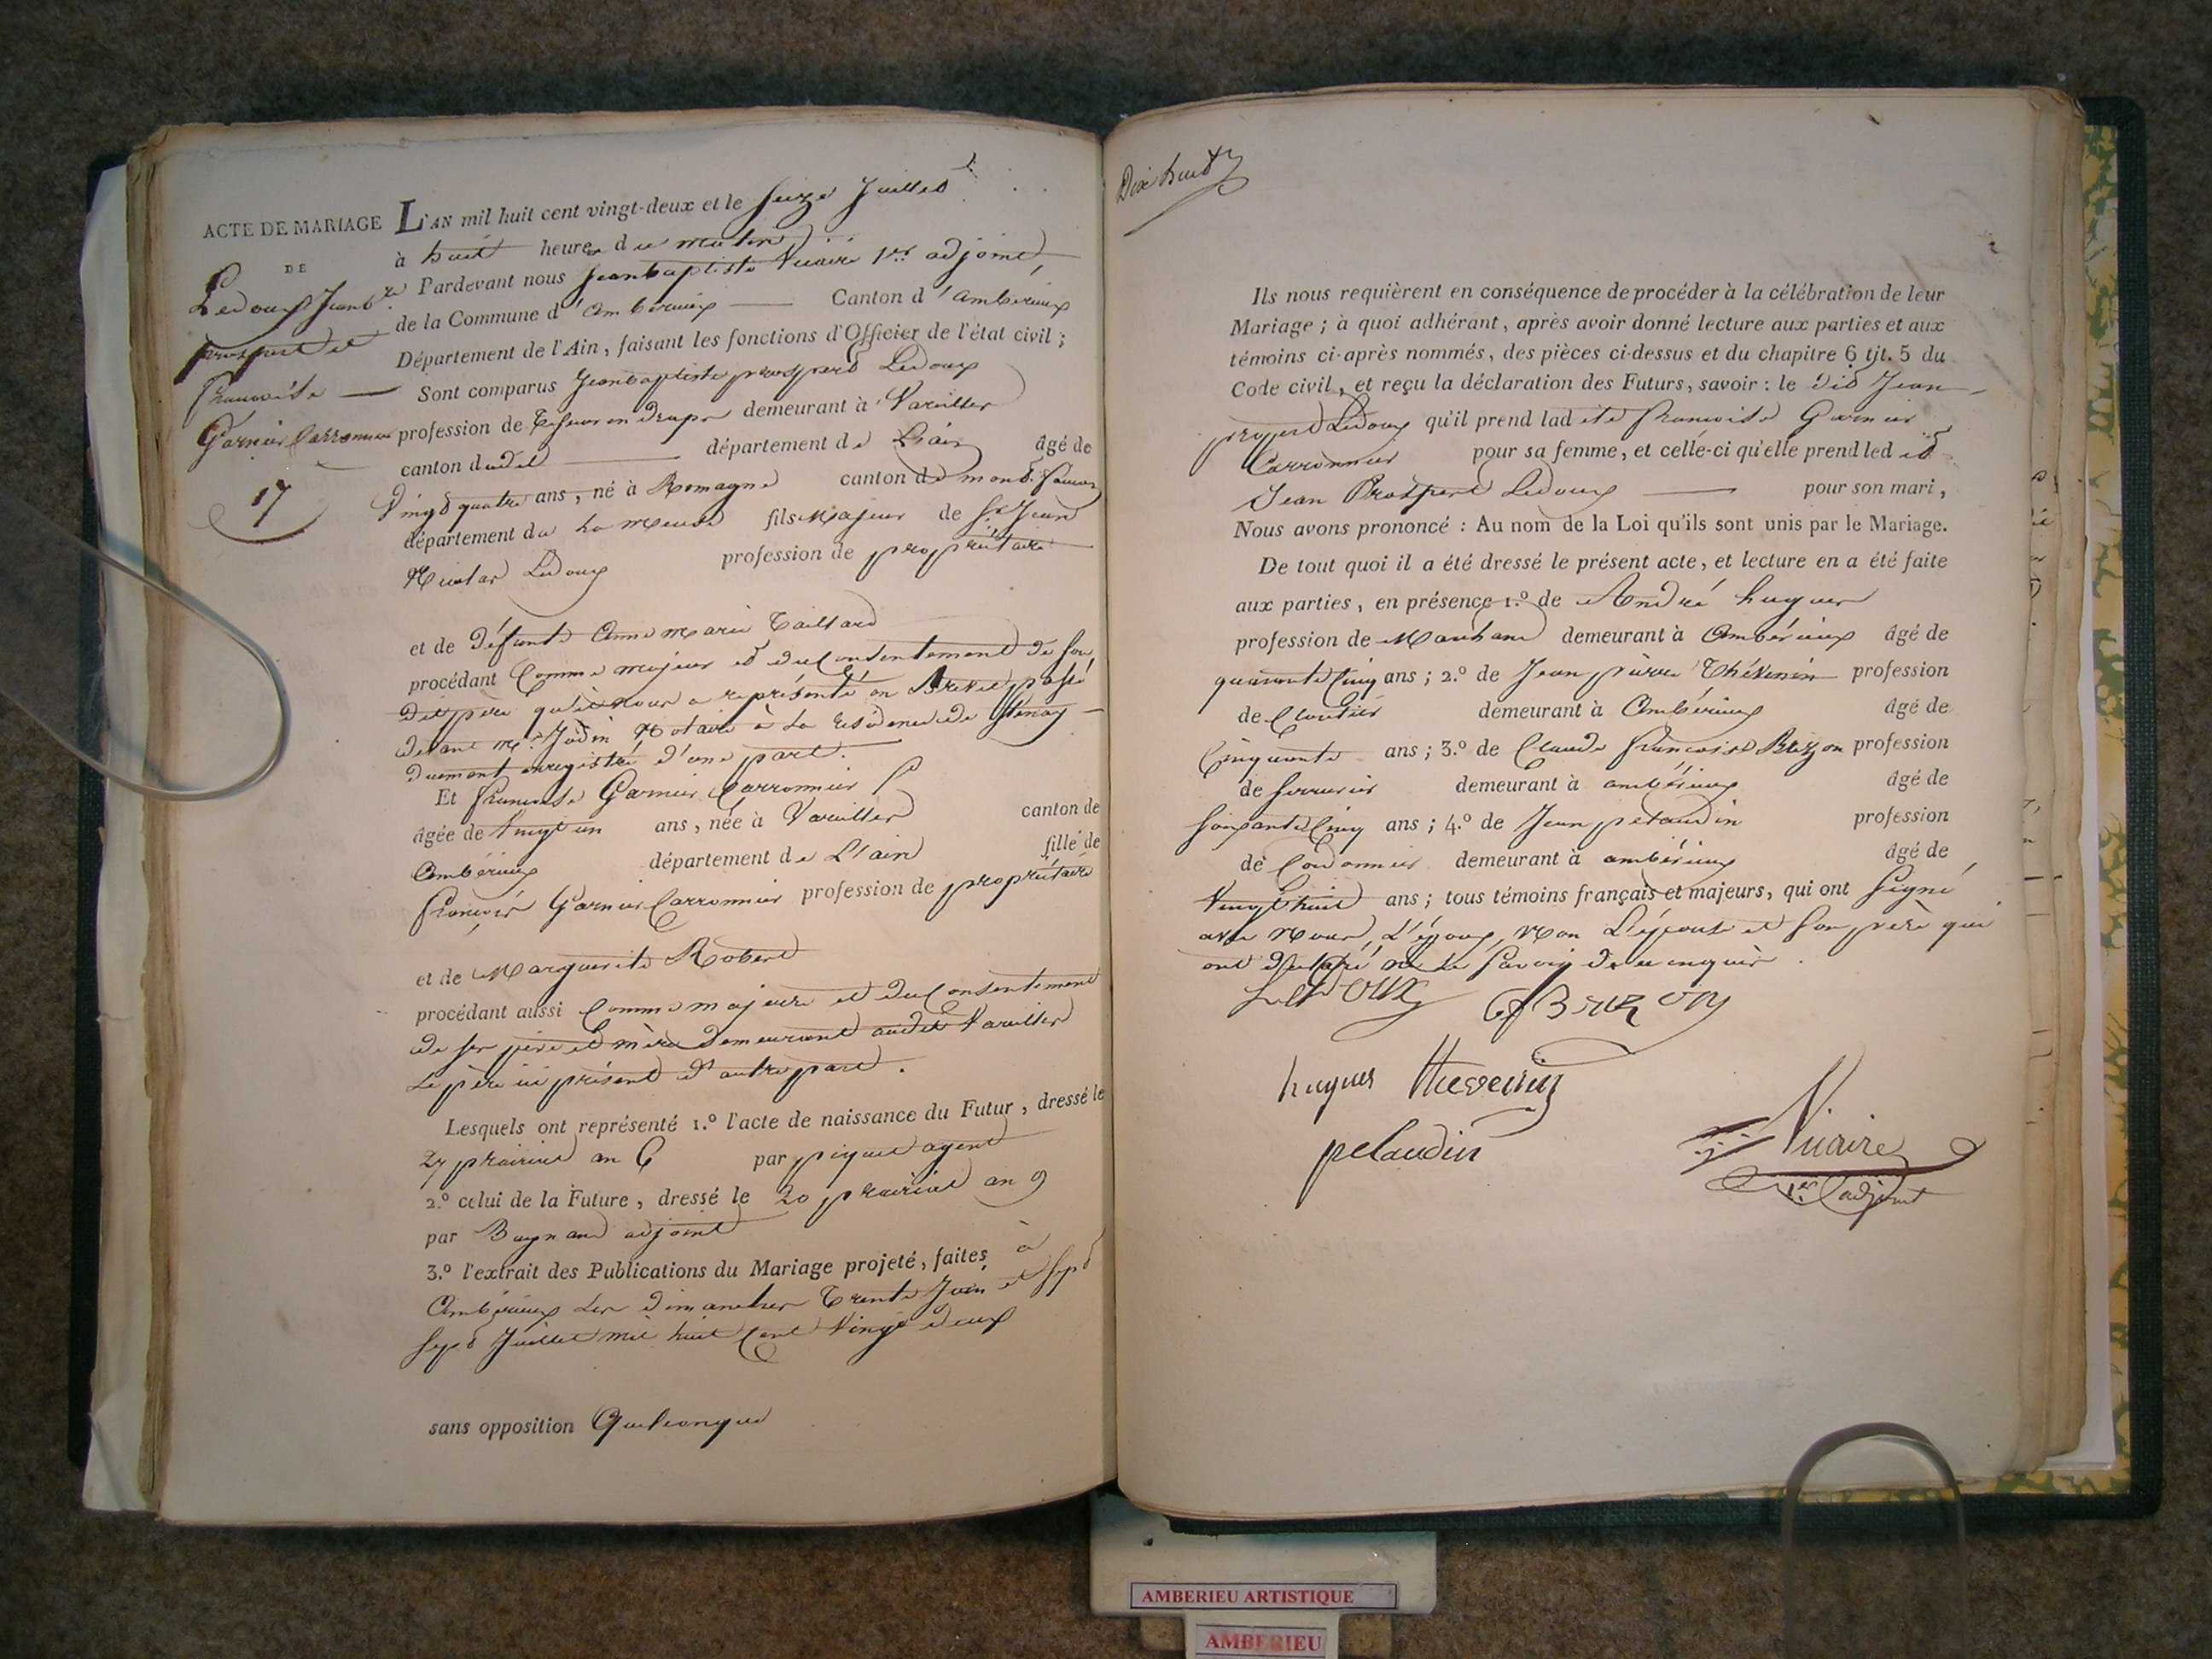 ACTE DE MARIAGE
DE
Ledoux Jean b.te
prospert et
francoise
Garnier Carronnier
17
L'AN mil huit cent vingt-deux et le seize Juillet
à huit heures du matin
Pardevant nous Jean baptiste Vicaire 1.er adjoint
de la Commune d'ambérieux Canton d'ambérieux
Département de l'Ain, faisant les fonctions d'Officier de l'état civil ;
Sont comparus Jean baptiste prospert Ledoux
profession de en draps demeurant à Vareilles
canton dudit département de L'ain âgé de
Vingt quatre ans, né à Romagne canton de mont faucon
département de La meuse fils Majeur de Sr Jean
Nicolas Ledoux profession de propriétaire
et de défunte Anne marie Taillard
procédant Comme majeur et du Consentement de son
dit père qu'il nous a représenté en Brevet passé
devant M.e Jodin Notaire à la résidence de Stenay
duement enregistré d'une part.
Et francoise Garnier Carronnier
âgée de Vingt un ans, née à Vareilles canton de
Ambérieux département de L'ain fille de
françois Garnier Carronnier profession de propriétaire
et de Marguerite Robert
procédant aussi Comme majeure et du Consentement
de ses père et mère demeurant audit Vareilles
Le père ici présent d'autre part.
Lesquels ont représenté 1.º l'acte de naissance du Futur, dressé le
27 prairial an 6 par piquet agent
2.º celui de la Future, dressé le 20 prairial an 9
par adjoint
3.º l'extrait des Publications du Mariage projeté, faites à
Ambérieux les dimanches trente Juin et sept
sept Juillet mil huit Cent Vingt deux
sans opposition Quelconque
Dix huit
Ils nous requièrent en conséquence de procéder à la célébration de leur
Mariage ; à quoi adhérant, après avoir donné lecture aux parties et aux
témoins ci-après nommés, des pièces ci-dessus et du chapitre 6 tit. 5 du
Code civil, et reçu la déclaration des Futurs, savoir : le dit Jean
prospert Ledoux qu'il prend ladite francoise Garnier
Carronnier pour sa femme, et celle-ci qu'elle prend ledit
Jean Prospert Ledoux pour son mari,
Nous avons prononcé : Au nom de la Loi qu'ils sont unis par le Mariage.
De tout quoi il a été dressé le présent acte, et lecture en a été faite
aux parties, en présence 1.º de André hugues
profession de Marchand demeurant à Ambérieux âgé de
quarante Cinq ans ; 2.º de Jean pierre Thévenin profession
de Cloutier demeurant à Ambérieux âgé de
Cinquante ans ; 3.º de Claude francois Brizon profession
de serrurier demeurant à ambérieux âgé de
soixante Cinq ans ; 4.º de Jean petaudin profession
de Cordonnier demeurant à ambérieux âgé de
Vingt huit ans ; tous témoins français et majeurs, qui ont signé
avec Nous, L'époux, Non L'épouse et son père qui
ont déclaré ne le savoir de ce enquis.
LedOUX
hugues thevenin
petaudin
Vicaire
1er adjoint
AMBERIEU ARTISTIQUE
AMBERIEU